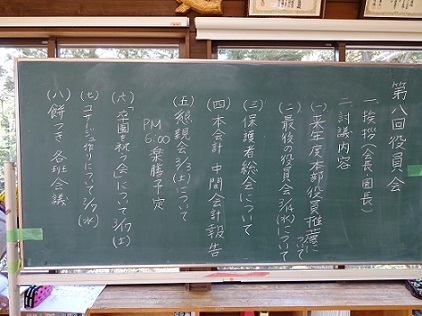 第八回役員会
一、挨拶(会長・園長)
二、討議内容
(一)来年度本部役員推薦について
(二)最後の役員会3/14(水)について
(三)保護者総会について
(四)本会計 中間会計報告
(五)懇親会3/3(土)について
PM6:00 乗膳予定
(六)「卒園を祝う会」について3/17(土)
(七)コサージュ作りについて2/7(水)
(八)餅つき 各班会議